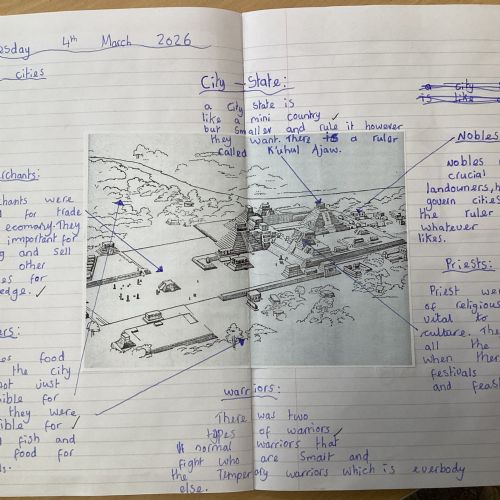 esday 4th March 2026
cities
City-State:
a City state is
like a mini country
but smaller and rule it however
they want. There is a ruler
called K'uhul Ajaw.
a city
is like
Nobles
Nobles
crucial
landowners, h
govern cities
the ruler
whatever
likes.
Priests:
Priest wer
of religious
vital to
culture. The
all the
when ther
festivals
and feas
rchants:
chants were
for trade
economy. They
important for
g and sell
other
es for
edge.
ers:
es food
the city
not just
sible for
they were
sible for
fish and
food for
s.
warriors:
There was two
types of warriors
normal warriors that
fight who are Smart and
the Temperory warriors which is everbody
else.